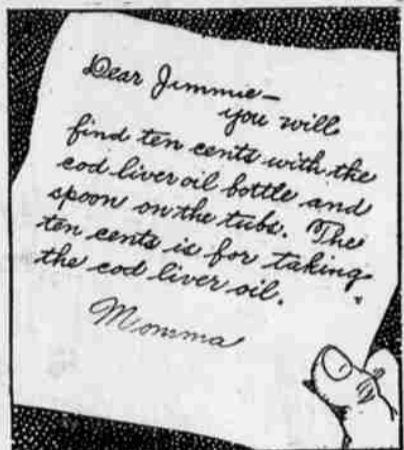 Dear Jimmie—
you will
find ten cents with the
cod liver oil bottle and
spoon on the tubs. The
ten cents is for taking
the cod liver oil.
Momma